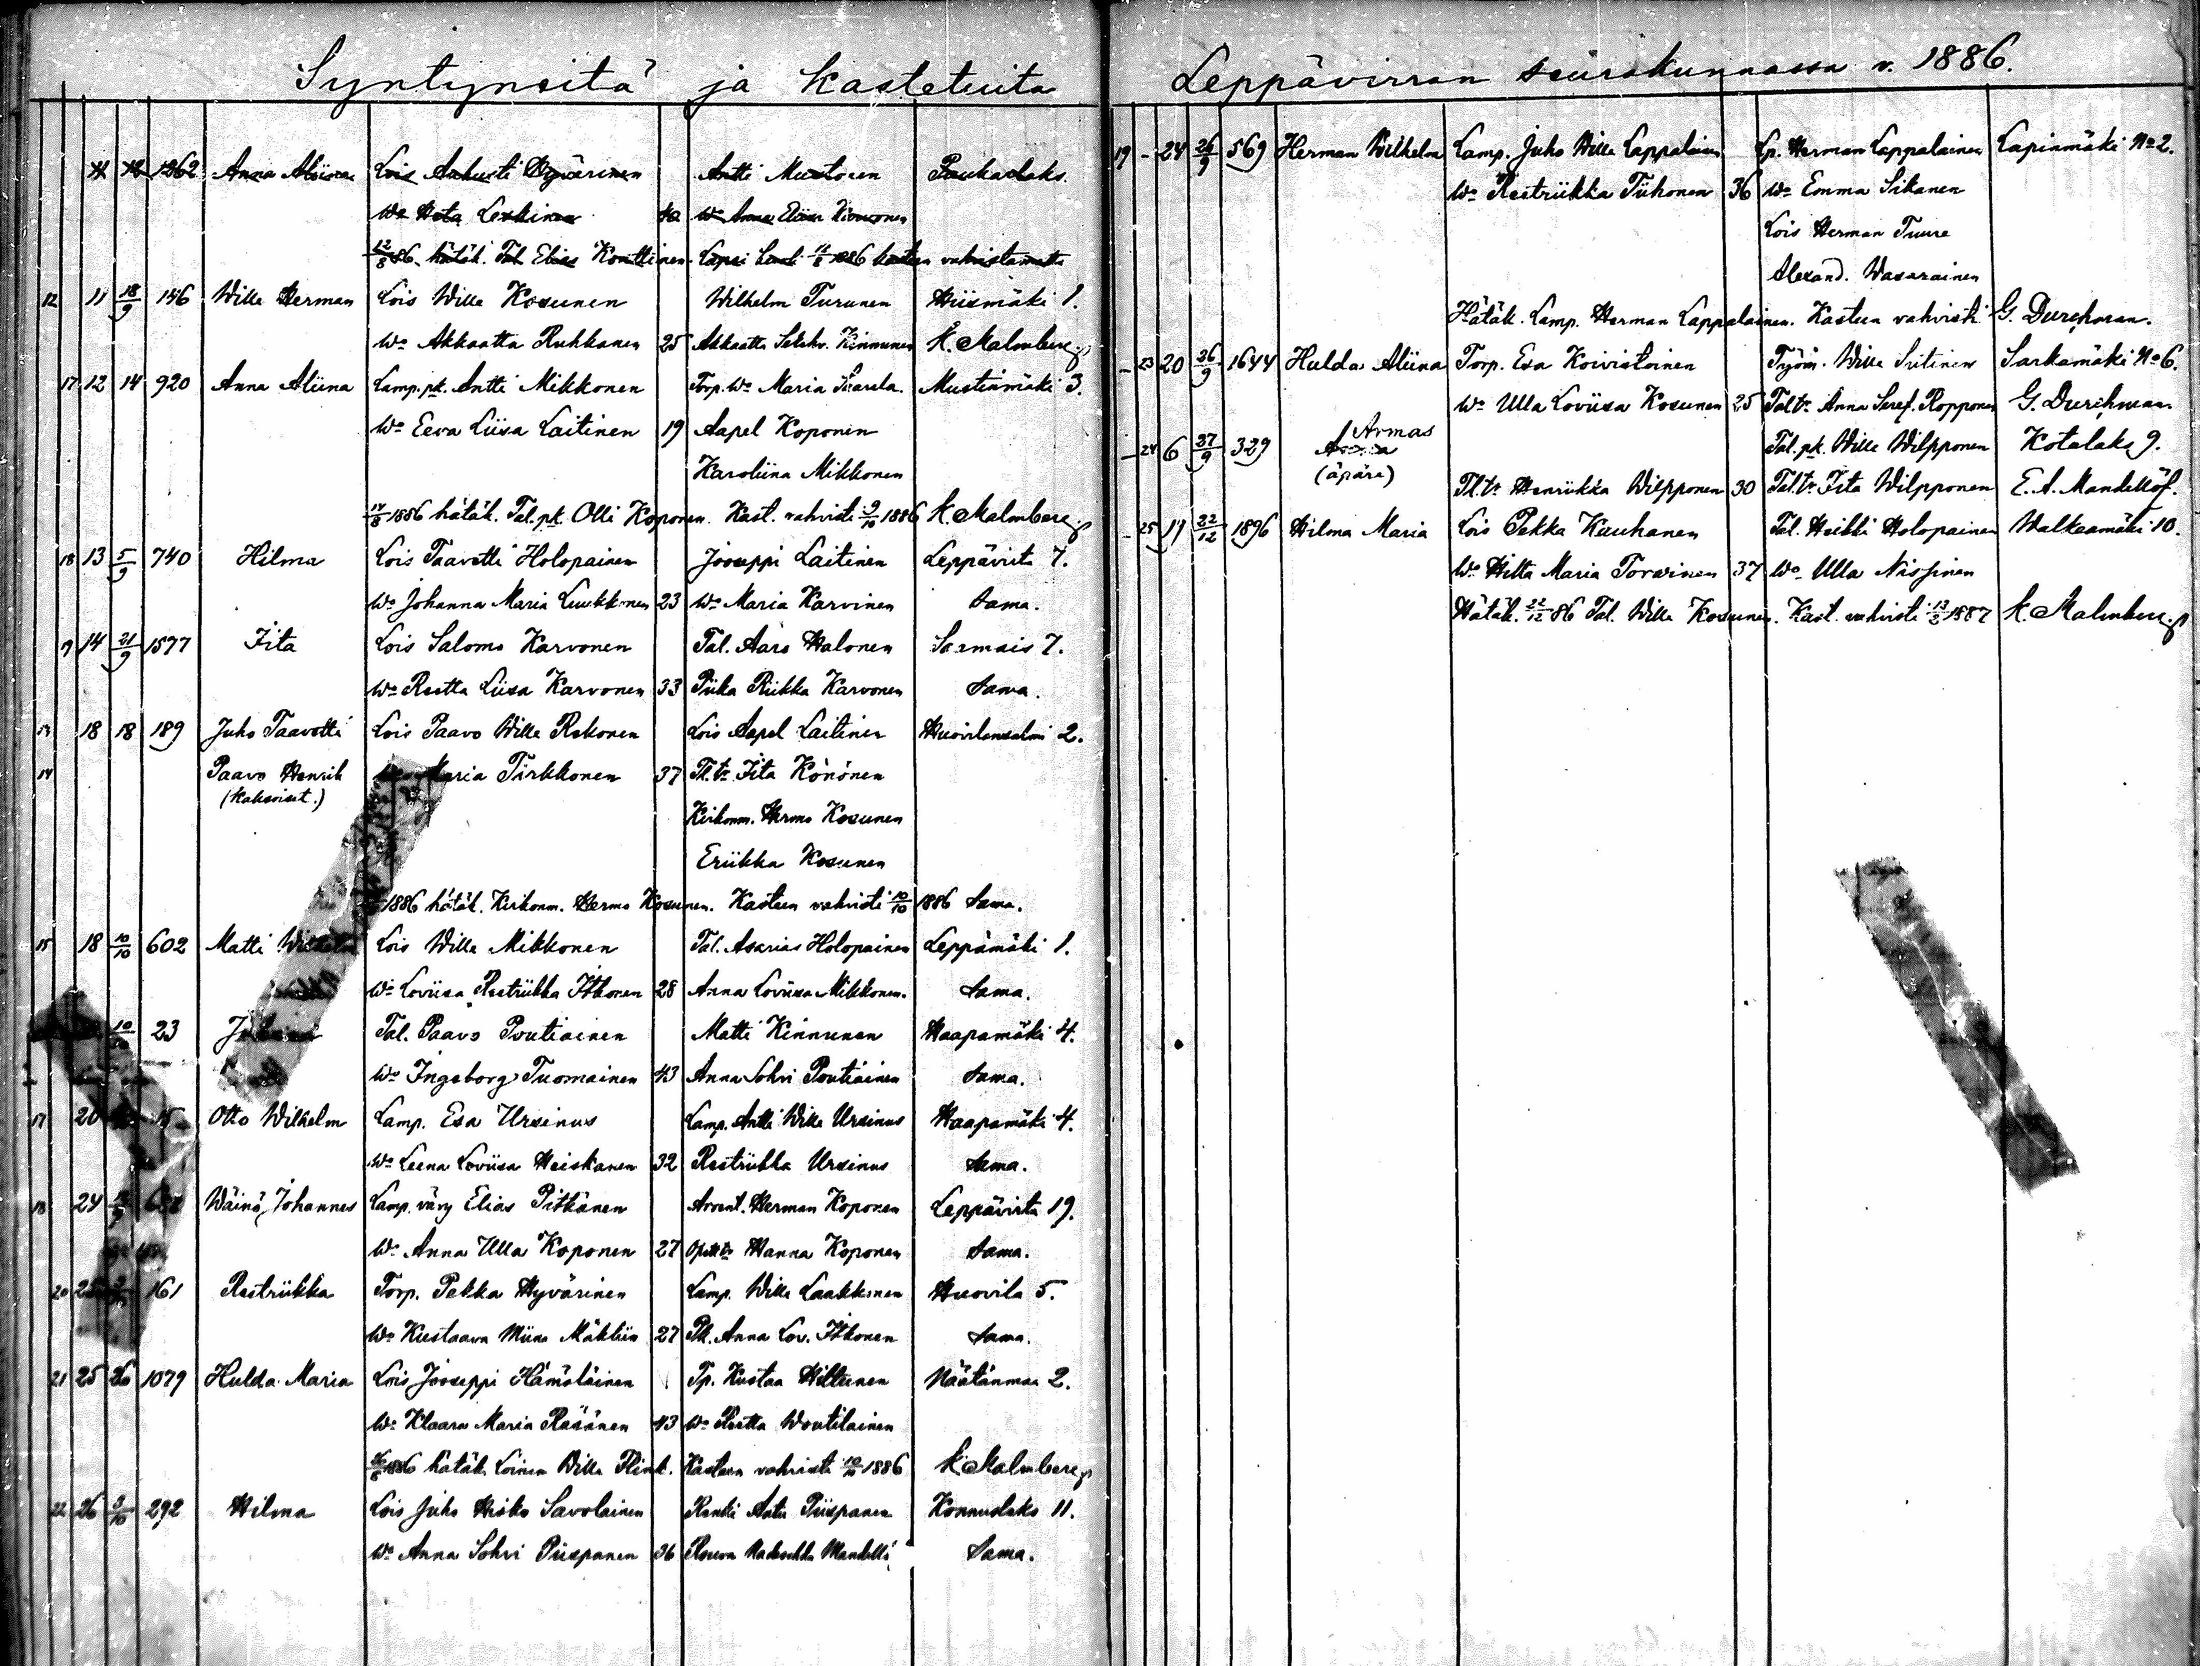 Syntyneitä ja kastetuita
1362 Anna Aliina Lois Aukusti Hyvärinen Antti Mustonen Paukarlaks.
Wo Leskinen
Tal. Elias Konttinen
12 11 18/9 146 Wille Herman Lois Wille Kosunen Wilhelm Turunen Hiismäki 1.
Wo Akkaatta Ruhkanen 25 Akkaatta Kinnunen K. Malmberg
17 12 14 920 Anna Aliina Lamp. pk. Antti Mikkonen Torp. Wo Maria Saarela. Mustinmäki 3.
Wo Eeva Liisa Laitinen 19 Aapel Koponen
Karoliina Mikkonen
1886 hätäk. Tal. pk. Olli Koponen. Kast. vahvisti 9/10 1886 K. Malmberg
18 13 5/9 740 Hilma Lois Taavetti Holopainen Jooseppi Laitinen Leppävirta 7.
Wo Johanna Maria Luukkonen 23 Wo Maria Karvinen Sama.
9 14 21/9 1577 Iita Lois Salomo Karvonen Tal. Aaro Halonen Sarmais 7.
Wo Reetta Liisa Karvonen 33 Piika Riikka Karvonen Sama.
13 18 18 189 Juho Taavetti Lois Paavo Wille Rekonen Lois Aapel Laitinen Huovilansalmi 2.
14 Paavo Henrik Maria Tirkkonen 37 Tl. tr. Iita Könönen
(Kaksoiset.)
Kirkonm. Herma Kosunen
Eriikka Kosunen
1886 hätäk. Kirkonm. Herma Kosunen. Kasteen vahvisti 10/10 1886 Sama.
15 18 10/10 602 Matti Wilhelm Lois Wille Mikkonen Tal. Asarias Holopainen Leppämäki 1.
Wo Loviisa Restriikka Itkonen 28 Anna Loviisa Mikkonen. Sama.
10/10 23 Tal. Paavo Poutiainen Matti Kinnunen Haapamäki 4.
Wo Ingeborg Tuomainen 43 Anna Sohvi Poutiainen Sama.
17 20 Otto Wilhelm Lamp. Esa Ursinus Lamp. Antti Wille Ursinus Haapamäki 4.
Wo Leena Loviisa Heiskanen 32 Restriikka Ursinus Sama.
18 24 Wäinö Johannes Lamp. väv. Elias Pitkänen Herman Koponen Leppävirta 19.
Wo Anna Ulla Koponen 27 Hanna Koponen Sama.
20 25 161 Restriikka Torp. Pekka Hyvärinen Lamp. Wille Laakkonen Huovila 5.
Wo Kustaava Miina Mäkliin 27 Anna Lov. Itkonen Sama.
21 25 26 1079 Hulda Maria Lois Jooseppi Hämäläinen Tp. Kustaa Hiltunen Näätänmaa 2.
Wo Klaara Maria Räsänen 43 Wo Reetta Woutilainen
1886 hätäk. Loinen Wille Flink. Kasteen vahvisti 10/10 1886 K. Malmberg
22 26 3/10 292 Hilma Lois Juho Hisko Savolainen Renki Antti Piispanen Konnuslaks 11.
Wo Anna Sohvi Piispanen 36 Sama.
Leppävirran seurakunnassa v. 1886.
19 - 24 26/9 569 Herman Wilhelm Lamp. Juho Wille Lappalainen Lp. Herman Lappalainen Lapinmäki No 2.
Wo Restriikka Tiihonen 36 Wo Emma Sikanen
Lois Herman Tuure
Alexand. Wasarainen
Hätäk. Lamp. Herman Lappalainen. Kasteen vahvisti G. Durchman.
23 20 26/9 1644 Hulda Aliina Torp. Esa Koivistoinen Työm. Wille Sutinen Sarkamäki No 6.
Wo Ulla Loviisa Kosunen 25 Tal. tr. Anna Seref. Ropponen G. Durchman.
Armas
24 6 27/9 329 Tal. pk. Wille Wilpponen Kotalaks 9.
(äpärä) Tl. tr. Henriikka Wilpponen 30 Tal. tr. Iita Wilpponen E. A. Mandellöf.
25 17 22/12 1896 Hilma Maria Lois Pekka Kauhanen Tal. Heikki Holopainen Walkeamäki 10.
Wo Hilta Maria Torvinen 37 Wo Ulla Nissinen
Hätäk. 22/12 86 Tal. Wille Kosunen. Kast. vahvisti 13/2 1887 K. Malmberg